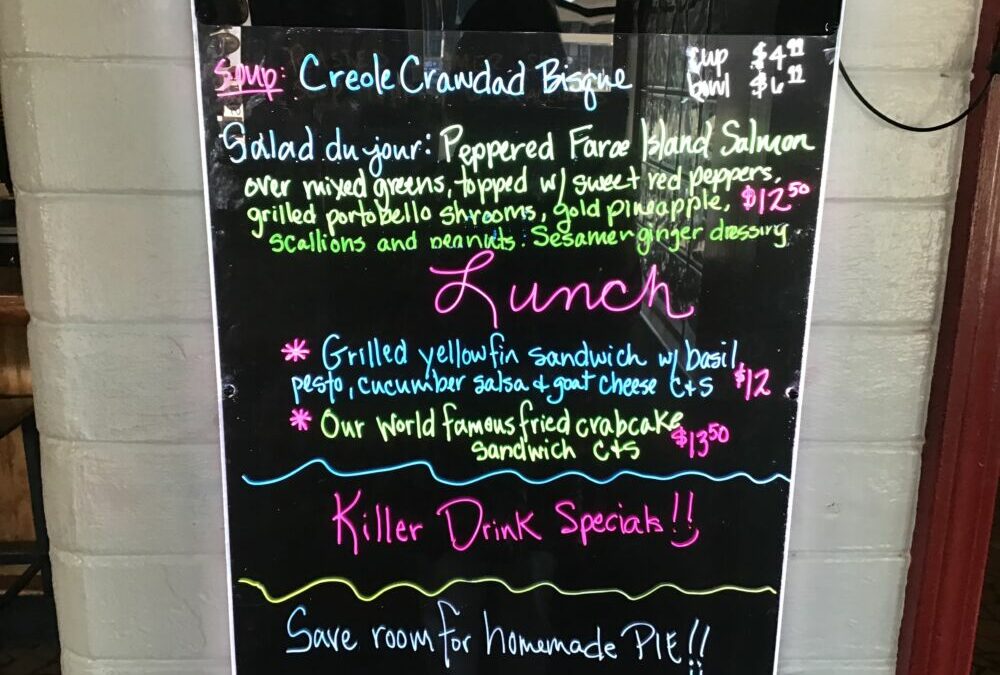 Soup: Creole Crawdad Bisque cup $4.99
bowl $6.99
Salad du jour: Peppered Faroe Island Salmon
over mixed greens, topped w/ sweet red peppers,
grilled portobello shrooms, gold pineapple, $12.50
scallions and peanuts. Sesame ginger dressing
Lunch
* Grilled yellowfin sandwich w/ basil
pesto, cucumber salsa + goat cheese C+S $12
* Our World famous fried crabcake
sandwich C+S $13.50
Killer Drink Specials!!
Save room for homemade PIE!!